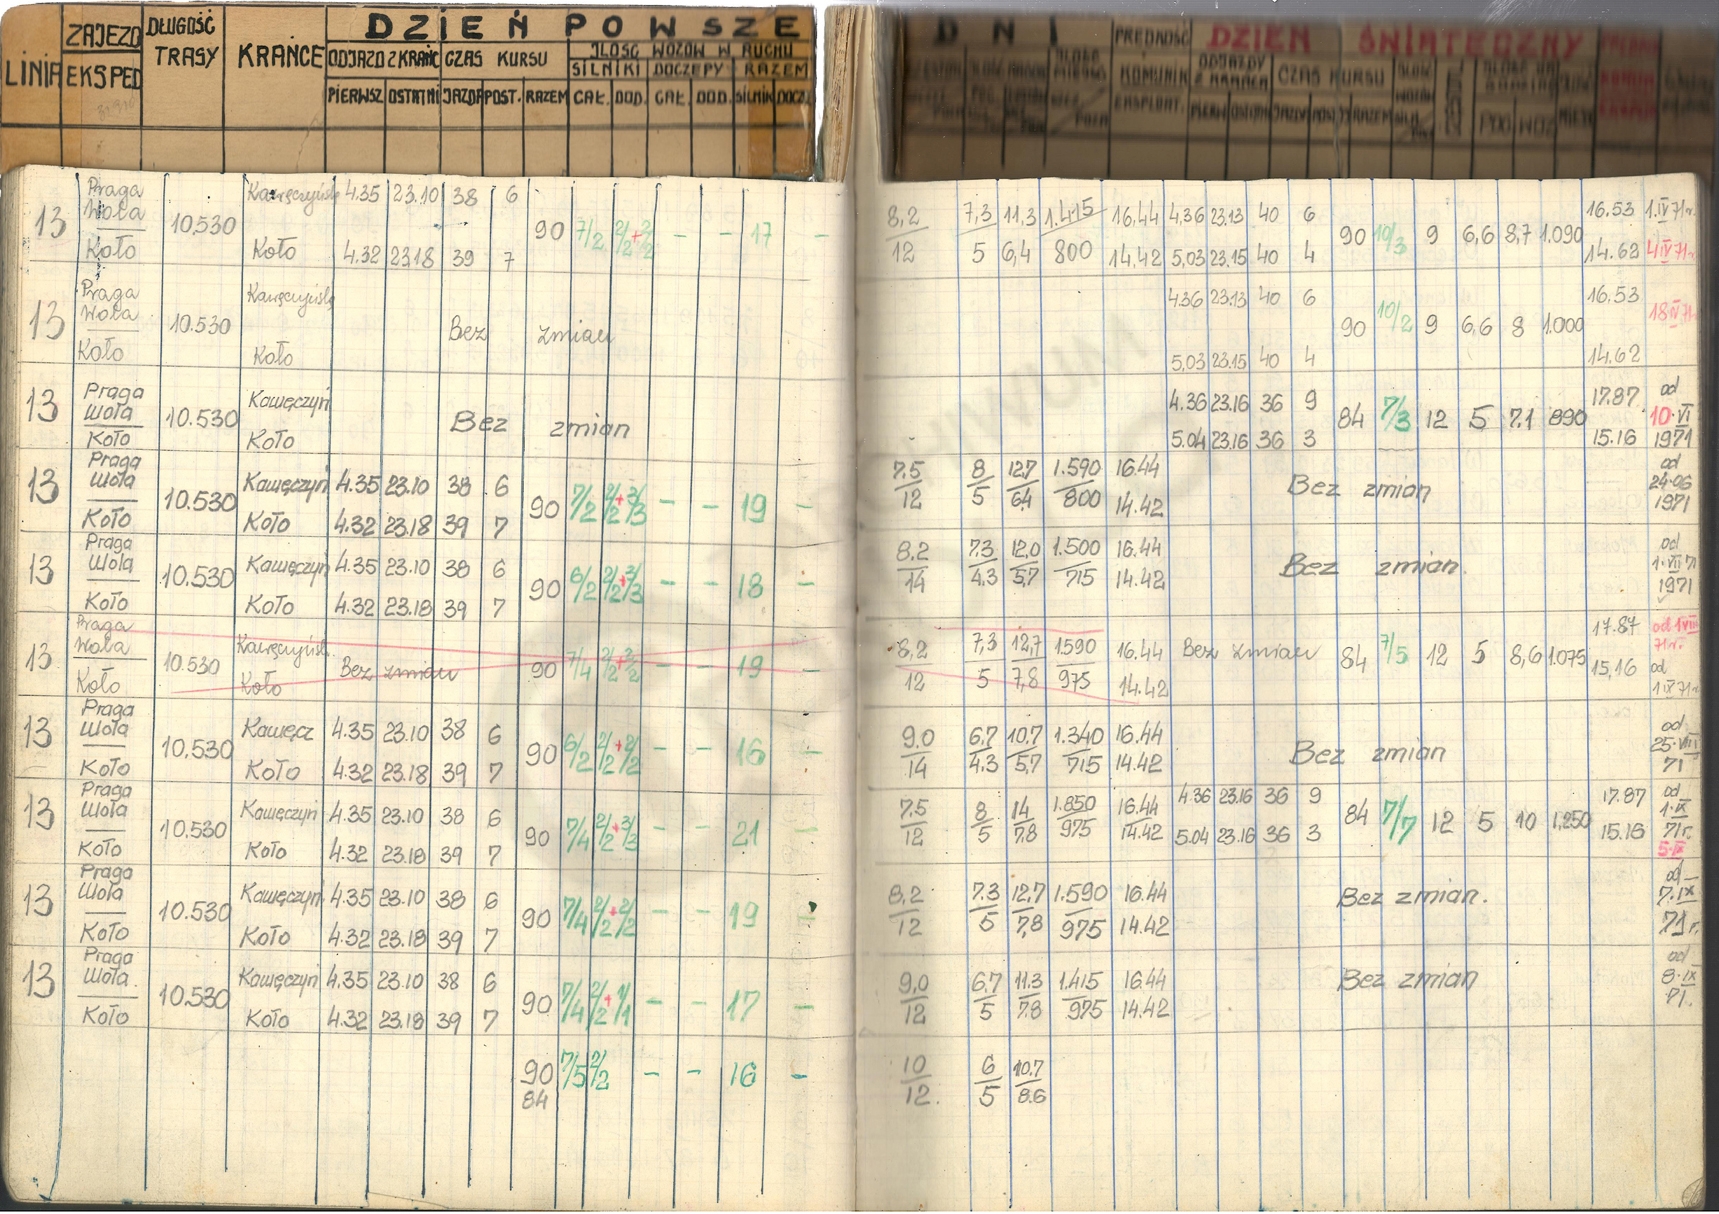 LINIA ZAJEZD EKSPED DŁUGOŚĆ TRASY KRAŃCE DZIEŃ POWSZE DNI DZIEŃ ŚWIĄTECZNY
ODJAZD Z KRAŃC CZAS KURSU ILOŚĆ WOZÓW W RUCHU
SILNIKI DOCZEPY RAZEM
PIERWSZ OSTATNI JAZDA POST. RAZEM CAŁ. DOD. CAŁ. DOD. SILNIK DOCZ.
KOMUNIK EKSPLOAT. CZAS KURSU
13 Praga Wola Koło 10.530 90 7/2 2/2+2/2 – – 17 –
4.35 23.10 38 6
Koło 4.32 23.18 39 7
8,2/12 7,3/5 11,3/6,4 1.415/800 16.44 14,42
4,36 23.13 40 6
5,03 23.15 40 4
90 10/3 9 6,6 8,7 1.090 16.53 14.62 1.IV 71r. 4 IV 71r.
13 Praga Wola Koło 10.530 Koło Bez zmian
4.36 23.13 40 6
5,03 23.15 40 4
90 10/2 9 6,6 8 1.000 16.53 14.62
13 Praga Wola Koło 10.530 Kawęczyń Koło Bez zmian
4.36 23.16 36 9
5.04 23.16 36 3
84 7/3 12 5 7.1 890 17.87 15.16 od 10.VI 1971
13 Praga Wola Koło 10.530 Kawęczyń 4.35 23.10 38 6
Koło 4.32 23.18 39 7
90 7/2 2/2+3/3 – – 19 –
7.5/12 8/5 12,7/6,4 1.590/800 16.44 14.42 Bez zmian od 24.06 1971
13 Praga Wola Koło 10.530 Kawęczyń 4.35 23.10 38 6
Koło 4.32 23.18 39 7
90 6/2 – – 18 –
8.2/14 7.3/4.3 12,0/5,7 1.500/715 16.44 14.42 Bez zmian. od 1.VII 71 1971
13 Praga Wola Koło 10.530 Koło Bez zmian 90 7/4 2/2+2/2 – – 19 –
8,2/12 7,3/5 12,7/7,8 1590/975 16.44 14.42 Bez zmian 84 7/5 12 5 8,6 1.075 17.87 15,16 od 1 VIII 71r. od 1 IX 71r.
13 Praga Wola Koło 10.530 Kawęcz 4.35 23.10 38 6
Koło 4.32 23.18 39 7
90 6/2 2/2+2/2 – – 16 –
9.0/14 6.7/4.3 10.7/5,7 1.340/715 16.44 14.42 Bez zmian od 25.VIII 71
13 Praga Wola Koło 10.530 Kawęczyń 4.35 23.10 38 6
Koło 4.32 23.18 39 7
90 7/4 2/2+3/3 – – 21 –
7.5/12 8/5 14/7.8 1.850/975 16.44 14.42
4.36 23.16 36 9
5.04 23.16 36 3
84 7/7 12 5 10 1,250 17.87 15.16 od 1.IX 71r. 5.IX
13 Praga Wola Koło 10.530 Kawęczyń 4.35 23.10 38 6
Koło 4.32 23.18 39 7
90 7/4 2/2+2/2 – – 19 –
8,2/12 7.3/5 12,7/7,8 1.590/975 16.44 14.42 Bez zmian. od 7.IX 71r.
13 Praga Wola. Koło 10.530 Kawęczyń 4.35 23.10 38 6
Koło 4.32 23.18 39 7
90 7/4 2/2+1/1 – – 17 –
9,0/12 6,7/5 11.3/7.8 1.415/975 16.44 14.42 Bez zmian od 8.IX 71.
90 84 7/5 2/2 – – 16 –
10/12. 6/5 10.7/8.6